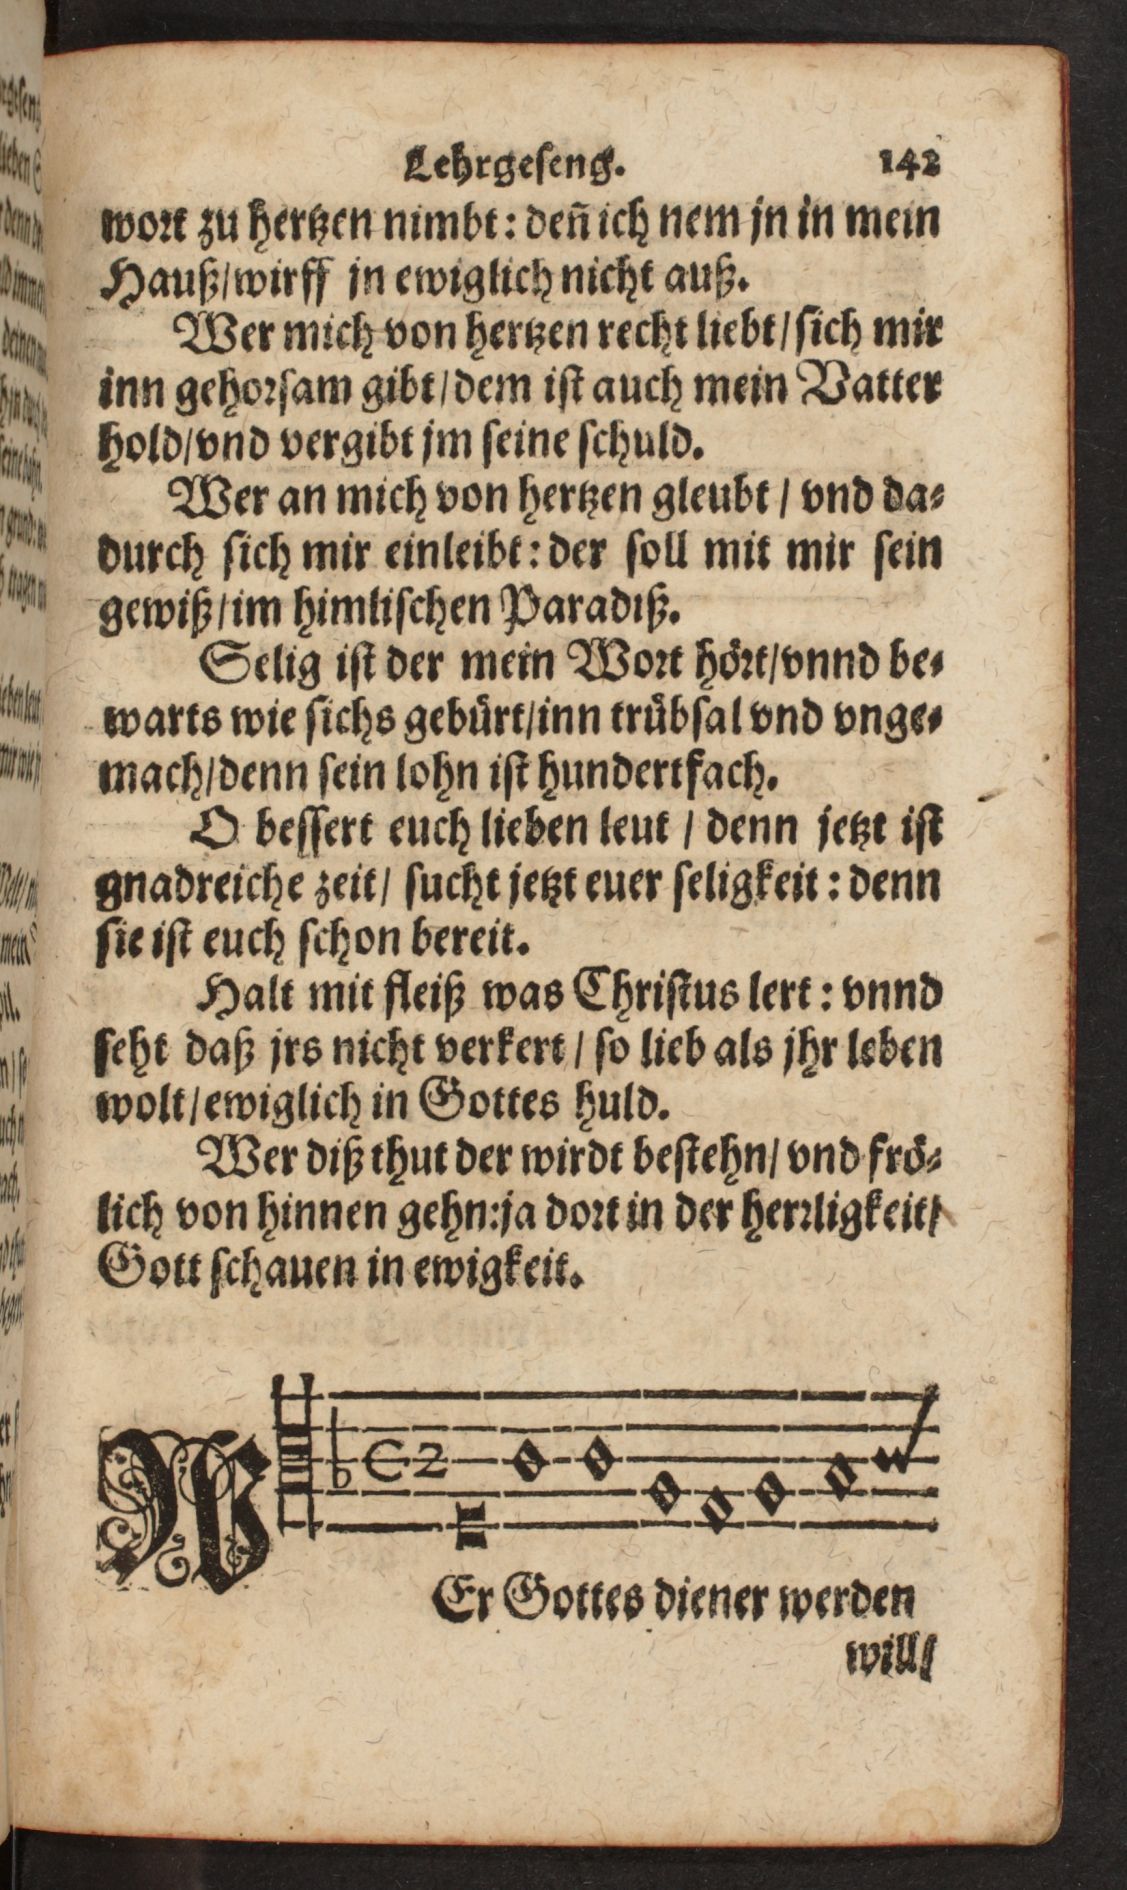 Lehrgeseng. 142
wort zu hertzen nimbt: deñ ich nem jn in mein
Hauß/wirff jn ewiglich nicht auß.
Wer mich von hertzen recht liebt/sich mir
inn gehorsam gibt/dem ist auch mein Vatter
hold/vnd vergibt jm seine schuld.
Wer an mich von hertzen gleubt / vnd da-
durch sich mir einleibt: der soll mit mir sein
gewiß/im himlischen Paradiß.
Selig ist der mein Wort hört/vnnd be-
warts wie sichs gebürt/inn trübsal vnd vnge-
mach/denn sein lohn ist hundertfach.
O bessert euch lieben leut / denn jetzt ist
gnadreiche zeit/ sucht jetzt euer seligkeit: denn
sie ist euch schon bereit.
Halt mit fleiß was Christus lert: vnnd
seht daß jrs nicht verkert / so lieb als jhr leben
wolt/ewiglich in Gottes huld.
Wer diß thut der wirdt bestehn/ vnd frö-
lich von hinnen gehn:ja dort in der herrligkeit/
Gott schauen in ewigkeit.
WEr Gottes diener werden
will/